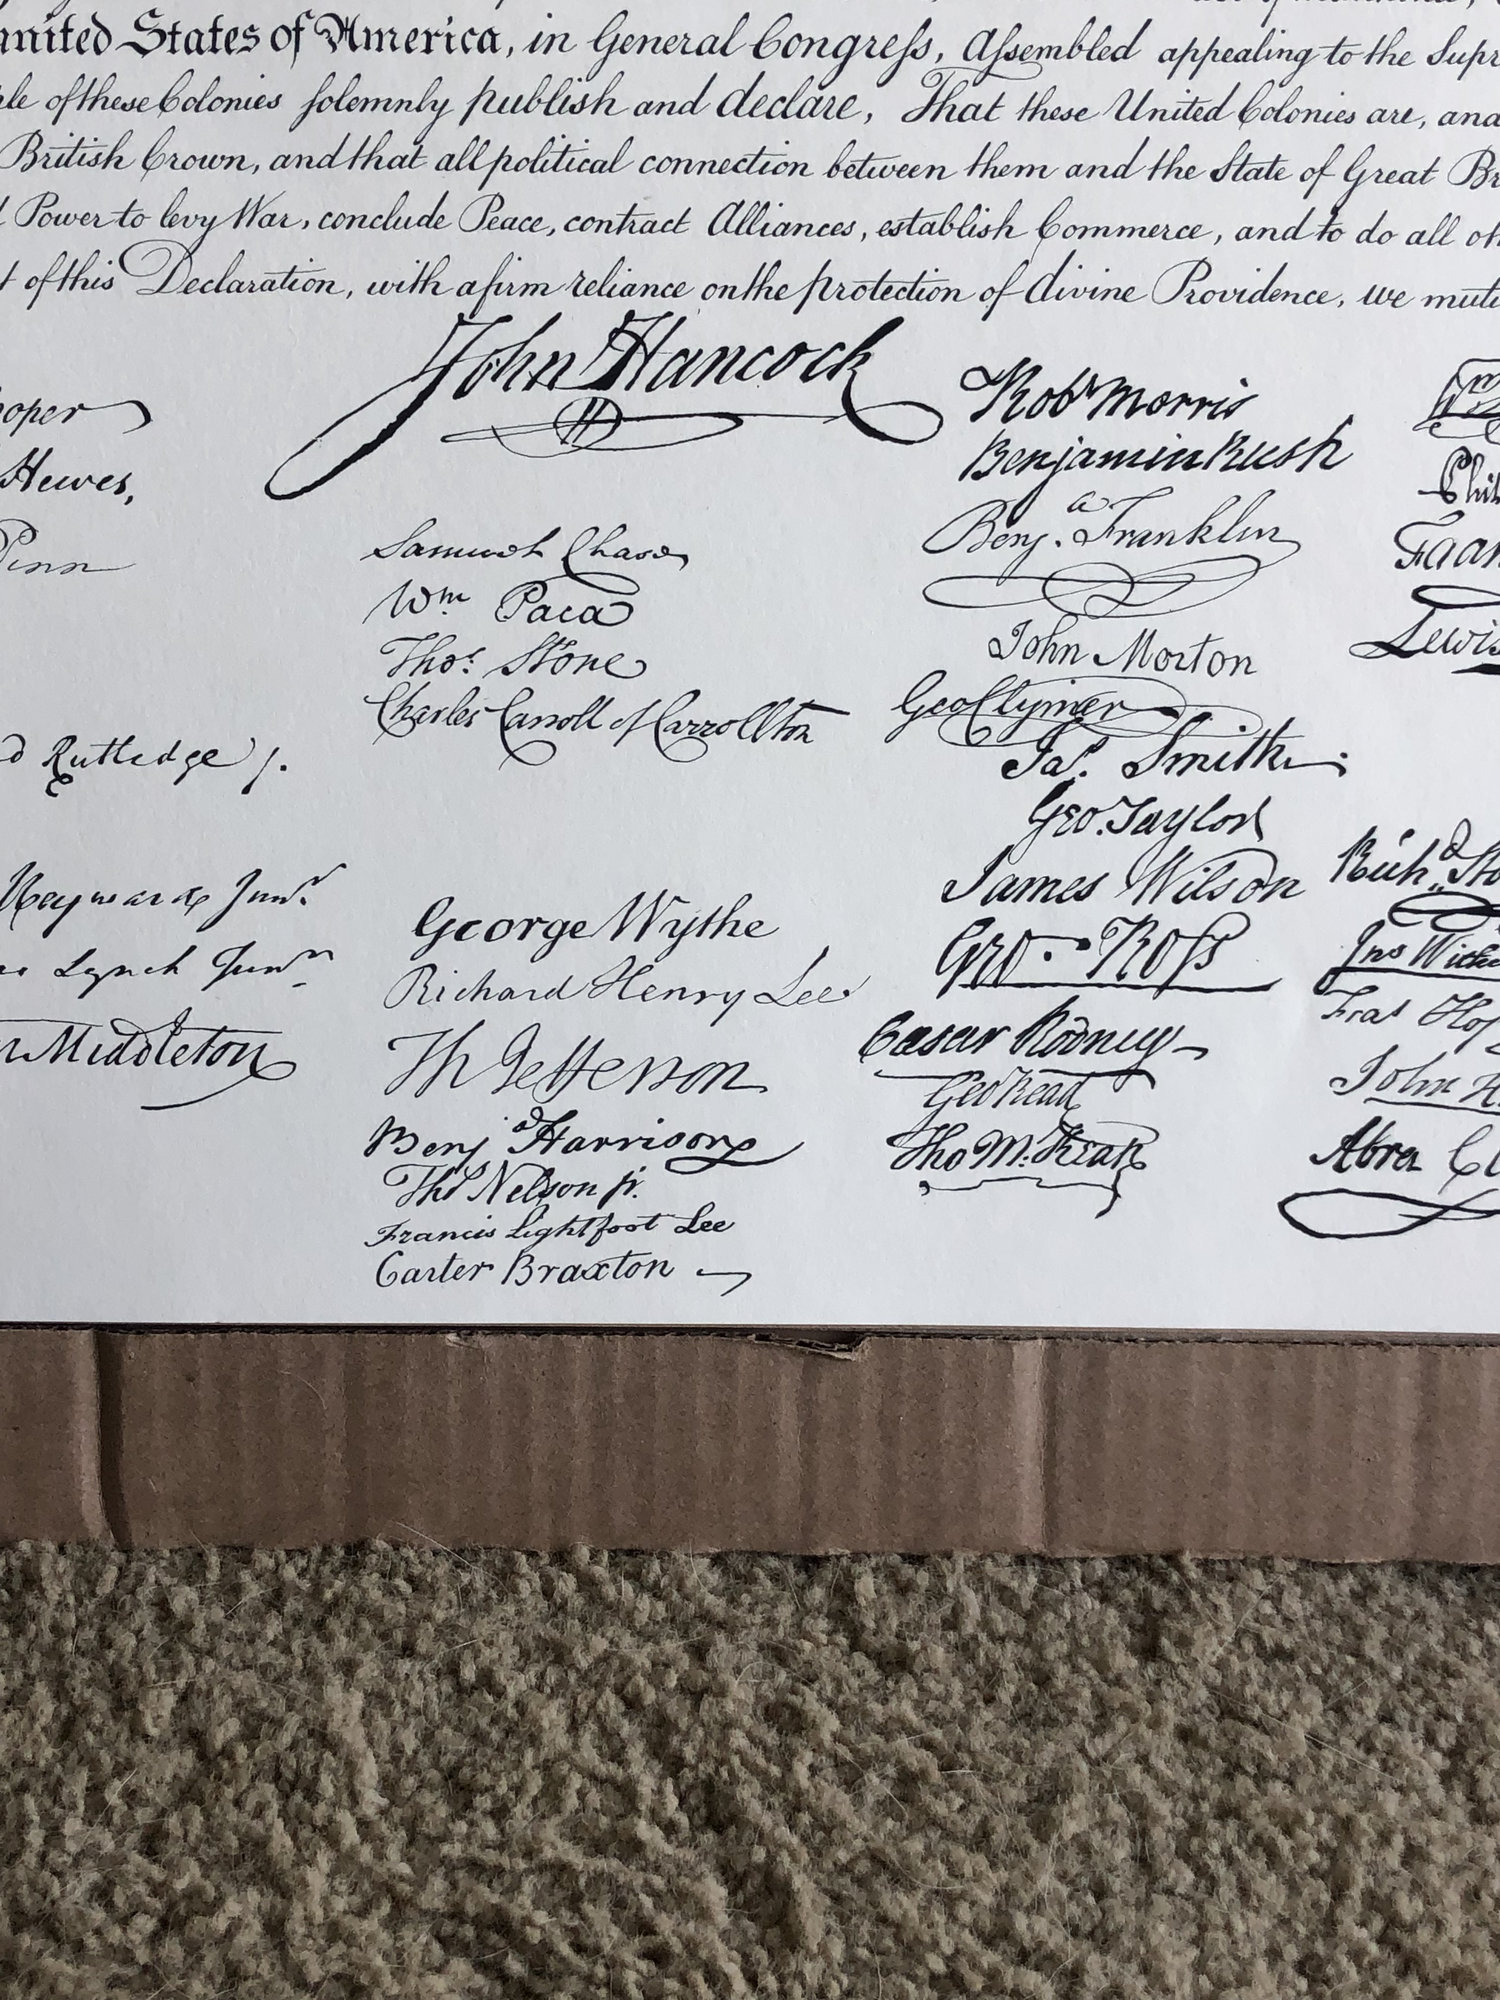 united States of America, in General Congress, Assembled appealing to the Supr
ple of these Colonies solemnly publish and declare, That these United Colonies are, and
British Crown, and that all political connection between them and the State of Great Br
Power to levy War, conclude Peace, contract Alliances, establish Commerce, and to do all oth
t of this Declaration, with a firm reliance on the protection of divine Providence, we mutu
John Hancock
ooper
Hewes,
Penn
d Rutledge /.
Heyward Junr.
as Lynch Junr.
r Middleton
Samuel Chase
Wm. Paca
Thos. Stone
Charles Carroll of Carrollton
George Wythe
Richard Henry Lee
Th Jefferson
Benja Harrison
Thos Nelson jr.
Francis Lightfoot Lee
Carter Braxton
Robt Morris
Benjamin Rush
Benja. Franklin
John Morton
Geo Clymer
Jas. Smith.
Geo. Taylor
James Wilson
Geo. Ross
Caesar Rodney
Geo Read
Tho M:Kean
Phil
Lewis
Richd. Sto
Jno Withe
Fras Hop
John H
Abra Cl